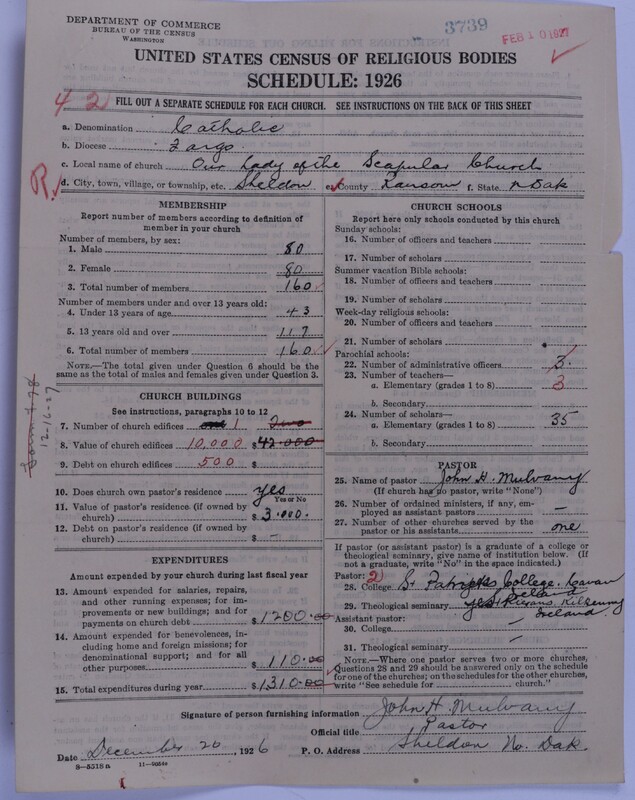 DEPARTMENT OF COMMERCE
BUREAU OF THE CENSUS
WASHINGTON
3739
FEB 10 1927
UNITED STATES CENSUS OF RELIGIOUS BODIES
SCHEDULE: 1926
42
FILL OUT A SEPARATE SCHEDULE FOR EACH CHURCH. SEE INSTRUCTIONS ON THE BACK OF THIS SHEET
a. Denomination Catholic
b. Diocese Fargo
c. Local name of church Our Lady of the Scapular Church
R.
d. City, town, village, or township, etc. Sheldon e. County Ransom f. State N Dak
MEMBERSHIP
Report number of members according to definition of member in your church
Number of members, by sex:
1. Male 80
2. Female 80
3. Total number of members 160
Number of members under and over 13 years old:
4. Under 13 years of age 43
5. 13 years old and over 117
6. Total number of members 160
NOTE.—The total given under Question 6 should be the same as the total of males and females given under Question 3.
12-16-27
CHURCH BUILDINGS
See instructions, paragraphs 10 to 12
7. Number of church edifices 1 Two
8. Value of church edifices 10,000 $ 42.000
9. Debt on church edifices 500 $
10. Does church own pastor's residence yes
Yes or No
11. Value of pastor's residence (if owned by church) $ 3.000.
12. Debt on pastor's residence (if owned by church) $ —
EXPENDITURES
Amount expended by your church during last fiscal year
13. Amount expended for salaries, repairs, and other running expenses; for improvements or new buildings; and for payments on church debt $ 1200.00
14. Amount expended for benevolences, including home and foreign missions; for denominational support; and for all other purposes $ 110.00
15. Total expenditures during year $ 1310.00
CHURCH SCHOOLS
Report here only schools conducted by this church
Sunday schools:
16. Number of officers and teachers
17. Number of scholars
Summer vacation Bible schools:
18. Number of officers and teachers
19. Number of scholars
Week-day religious schools:
20. Number of officers and teachers
21. Number of scholars
Parochial schools:
22. Number of administrative officers 3
23. Number of teachers—
a. Elementary (grades 1 to 8) 3
b. Secondary
24. Number of scholars—
a. Elementary (grades 1 to 8) 35
b. Secondary
PASTOR
25. Name of pastor John H. Mulvany
(If church has no pastor, write "None")
26. Number of ordained ministers, if any, employed as assistant pastors —
27. Number of other churches served by the pastor or his assistants one
If pastor (or assistant pastor) is a graduate of a college or theological seminary, give name of institution below. (If not a graduate, write "No" in the space indicated.)
Pastor: 2
28. College St Patricks College, Cavan Ireland
29. Theological seminary yes St Kierans, Kilkenny Ireland
Assistant pastor:
30. College
31. Theological seminary
NOTE.—Where one pastor serves two or more churches, Questions 28 and 29 should be answered only on the schedule for one of the churches; on the schedules for the other churches, write "See schedule for ______ church."
Signature of person furnishing information John H. Mulvany
Official title Pastor
Date December 20, 1926 P. O. Address Sheldon No. Dak.
8—5518 a